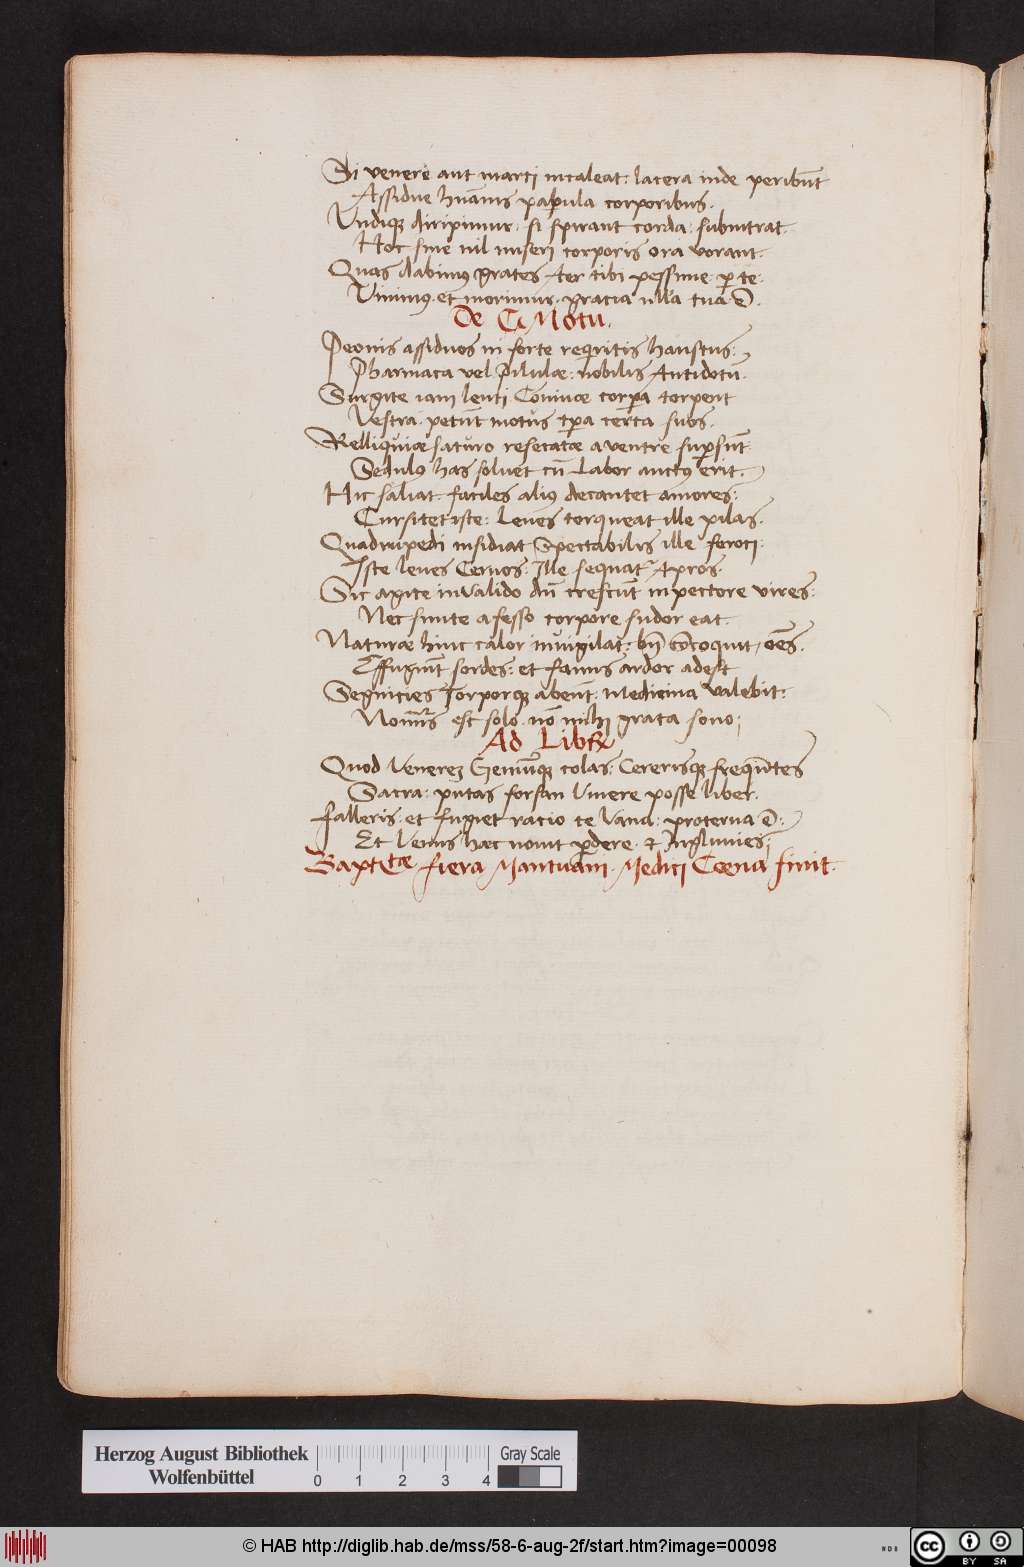 Si venere aut marti incaleat: lacera inde peribūt
Assidue hūanis papula corporibus.
Undiqꝫ diripimur: si spirant corda: subintrat.
Hoc sine nil miseri corporis ora vorant.
Quas dabimꝰ grates Aer tibi pessime: ꝑ te:
Vivimꝰ. et morimur. gratia ulla tua ē.
De Motu.
Peonis assiduos ni forte req̄ritis haustus:
Pharmaca vel Pilulæ: nobilis Antidotū.
Surgite iam lenti Convivæ corꝑa torpent
Vestra. petūt motus tꝑa certa suos.
Relliquiæ saturo resecatæ a ventre suꝑsūt.
Sedulꝰ has solvet cū Labor auctꝰ erit.
Hic saliat. faciles aliꝰ decantet amores:
Cursitet iste: Leves torqueat ille pilas.
Quadrupedi insidiat Spectabilis ille feroci:
Iste leves Cervos: Ille sequat Apros.
Sic agite invalido dū crescūt in pectore vires:
Nec sinite a fesso corpore sudor eat.
Naturæ hinc calor invigilat: bn̄ cōcoquit, oēs.
Effugiūt sordes: et famis ardor adest
Segnicies Torporqꝫ abeūt: Medicina valebit:
est solo. nō mihi grata sono;
Ad
Quod Venereꝫ Geniūqꝫ colas: Cererisqꝫ frequētes
Sacra: putas forsan Vivere posse liber.
Falleris: et fugiet racio te Vana: proterva ē:
Et Venus hæc novit ꝑdere. & Ingluvies;
Baptītæ Fiera Mantuani. Medici Coena finit.
Herzog August Bibliothek
Wolfenbüttel
0 1 2 3 4
Gray Scale
© HAB http://diglib.hab.de/mss/58-6-aug-2f/start.htm?image=00098
cc BY SA